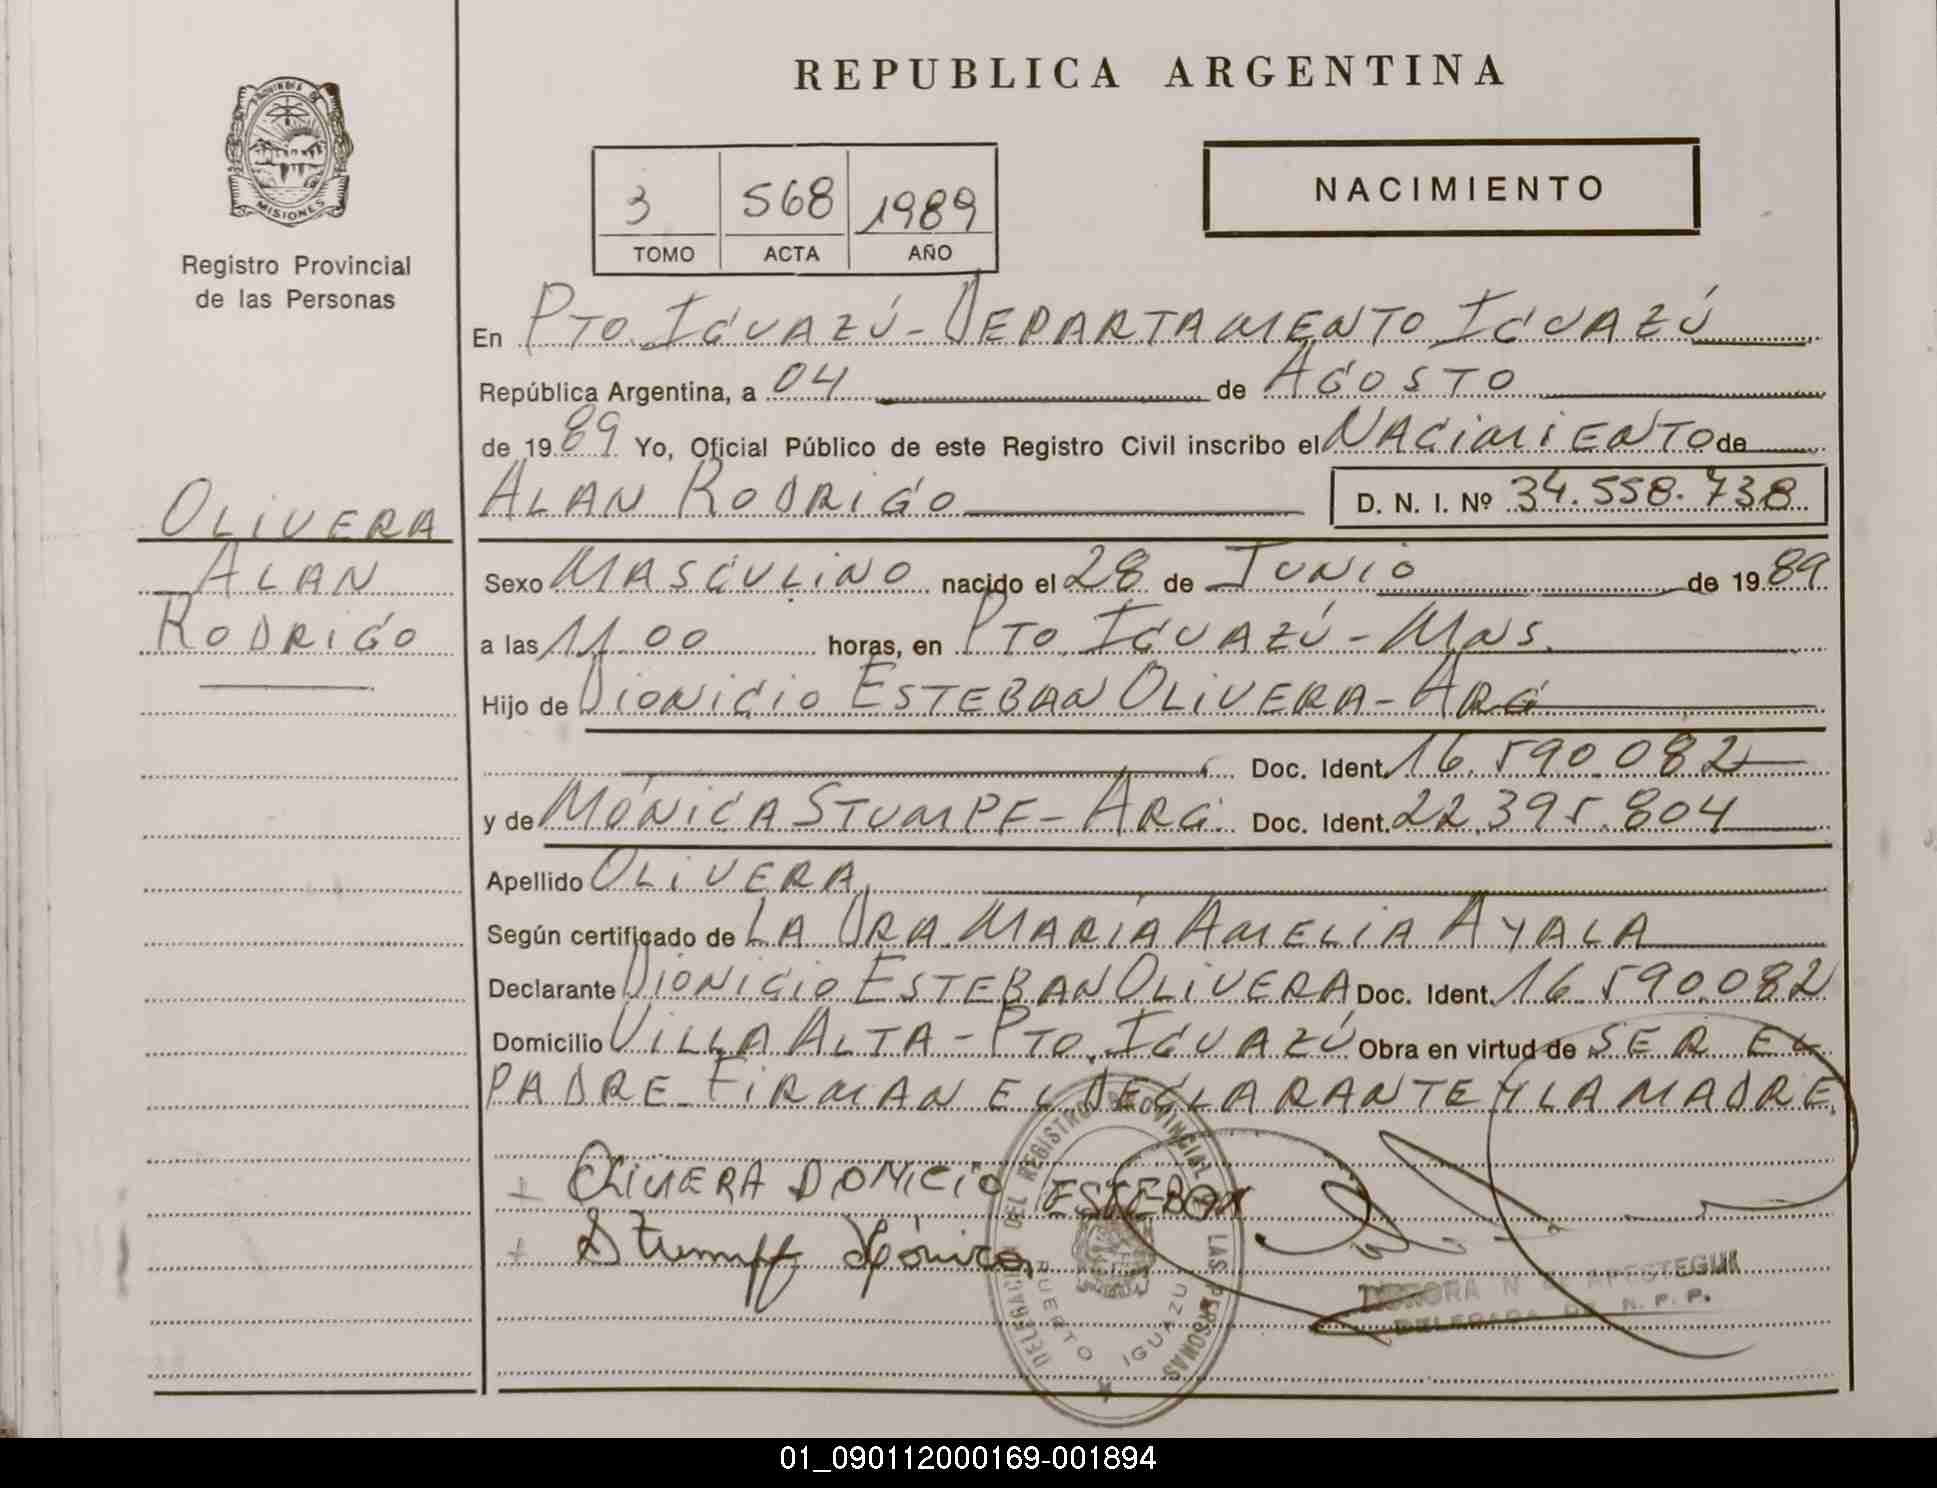 REPUBLICA ARGENTINA
PROVINCIA DE
MISIONES
Registro Provincial
de las Personas
3 568 1989
TOMO ACTA AÑO
NACIMIENTO
En PTO. IGUAZÚ - DEPARTAMENTO IGUAZÚ
República Argentina, a 04 de AGOSTO
de 1989 Yo, Oficial Público de este Registro Civil inscribo el NACIMIENTO de
ALAN RODRIGO D. N. I. Nº 34.558.738
OLIVERA
ALAN
RODRIGO
Sexo MASCULINO nacido el 28 de JUNIO de 1989
a las 11.00 horas, en PTO. IGUAZÚ - MNS.
Hijo de DIONICIO ESTEBAN OLIVERA - ARG
Doc. Ident. 16.590.082
y de MÓNICA STUMPF - ARG. Doc. Ident. 22.395.804
Apellido OLIVERA
Según certificado de LA DRA. MARÍA AMELIA AYALA
Declarante DIONICIO ESTEBAN OLIVERA Doc. Ident. 16.590.082
Domicilio VILLA ALTA - PTO. IGUAZÚ Obra en virtud de SER EL
PADRE. FIRMAN EL DECLARANTE Y LA MADRE.
+ OLIVERA DONICIO ESTEBAN
+ Stumpf Mónica
DEL REGISTRO PROVINCIAL LAS PERSONAS
PUERTO IGUAZU
DELEGADA R. P. P.
01_090112000169-001894